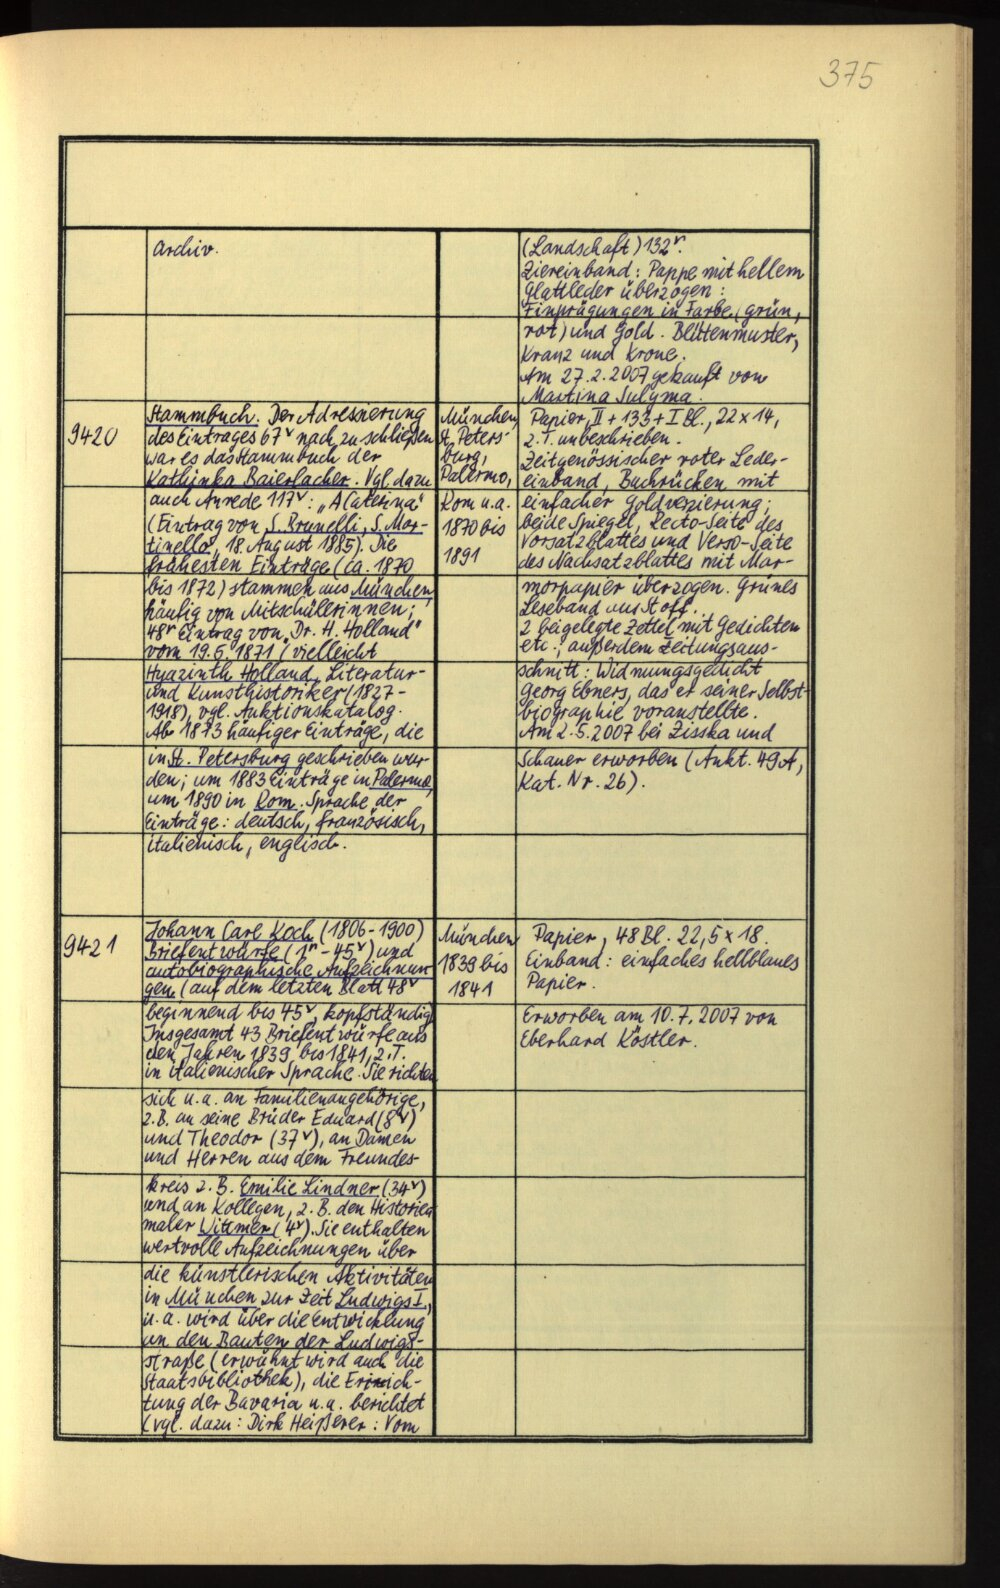 375
Archiv.
(Landschaft) 132ʳ.
Ziereinband: Pappe mit hellem
Glattleder überzogen:
Einprägungen in Farbe (grün,
rot) und Gold. Blütenmuster,
Kranz und Krone.
Am 27.2.2007 gekauft von
Martina Sulyma.
9420
Stammbuch. Der Adressierung
des Eintrages 67ᵛ nach zu schließen
war es das Stammbuch der
Kathinka Baierlacher. Vgl. dazu
auch Anrede 117ᵛ: „A Caterina"
(Eintrag von S. Brunelli, S. Mar-
tinello, 18. August 1885). Die
frühesten Einträge (ca. 1870
bis 1872) stammen aus München,
häufig von Mitschülerinnen;
48ʳ Eintrag von „Dr. H. Holland"
vom 19.6.1871 (vielleicht
Hyazinth Holland, Literatur-
und Kunsthistoriker (1827-
1918), vgl. Auktionskatalog.
Ab 1873 häufiger Einträge, die
in St. Petersburg geschrieben wur-
den; um 1883 Einträge in Palermo,
um 1890 in Rom. Sprache der
Einträge: deutsch, französisch,
italienisch, englisch.
München,
St. Peters-
burg,
Palermo,
Rom u.a.
1870 bis
1891
Papier, II + 133 + I Bl., 22 x 14,
z.T. unbeschrieben.
Zeitgenössischer roter Leder-
einband, Buchrücken mit
einfacher Goldverzierung;
beide Spiegel, Recto-Seite des
Vorsatzblattes und Verso-Seite
des Nachsatzblattes mit Mar-
morpapier überzogen. Grünes
Leseband aus Stoff.
2 beigelegte Zettel mit Gedichten
etc.; außerdem Zeitungsaus-
schnitt: Widmungsgedicht
Georg Ebners, das er seiner Selbst-
biographie voranstellte.
Am 2.5.2007 bei Zisska und
Schauer erworben (Aukt. 49A,
Kat. Nr. 26).
9421
Johann Carl Koch (1806-1900)
Briefentwürfe (1ʳ-45ᵛ) und
autobiographische Aufzeichnun-
gen (auf dem letzten Blatt 48ᵛ
beginnend bis 45ᵛ, kopfständig)
Insgesamt 43 Briefentwürfe aus
den Jahren 1839 bis 1841, z.T.
in italienischer Sprache. Sie richten
sich u.a. an Familienangehörige,
z.B. an seine Brüder Eduard (8ᵛ)
und Theodor (37ᵛ), an Damen
und Herren aus dem Freundes-
kreis z.B. Emilie Lindner (34ᵛ)
und an Kollegen, z.B. den Historien-
maler Wittmer (4ᵛ). Sie enthalten
wertvolle Aufzeichnungen über
die künstlerischen Aktivitäten
in München zur Zeit Ludwigs I.,
u.a. wird über die Entwicklung
an den Bauten der Ludwigs-
straße (erwähnt wird auch die
Staatsbibliothek), die Errich-
tung der Bavaria u.a. berichtet
(vgl. dazu: Dirk Heißerer: Vom
München
1839 bis
1841
Papier, 48 Bl. 22,5 x 18.
Einband: einfaches hellblaues
Papier.
Erworben am 10.7.2007 von
Eberhard Köstler.